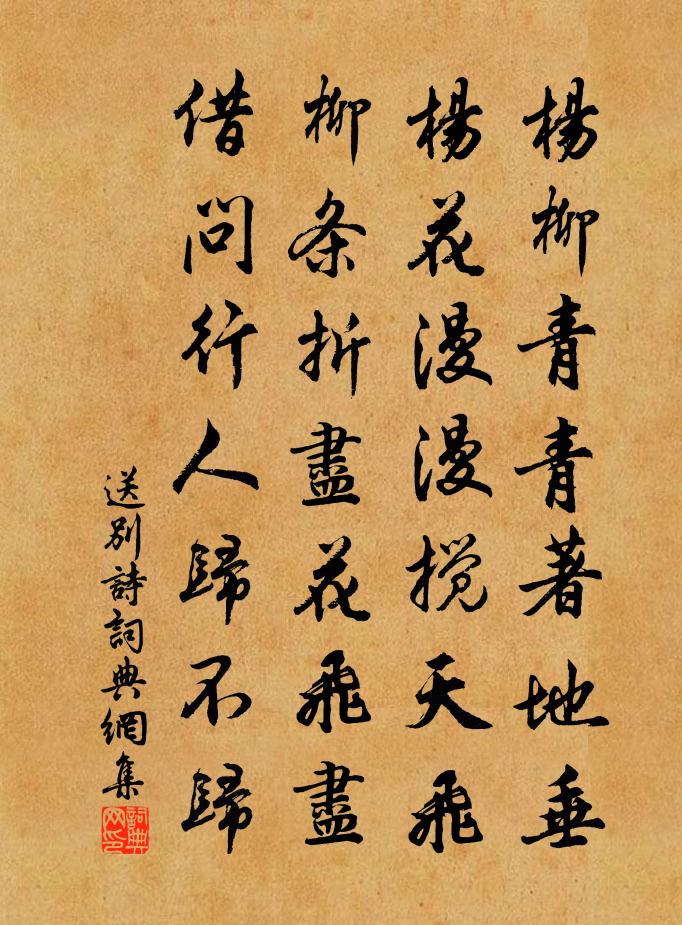 楊柳青青著地垂
楊花漫漫搅天飛
柳条折盡花飛盡
借問行人歸不歸
送别詩詞典網集
詞典网印